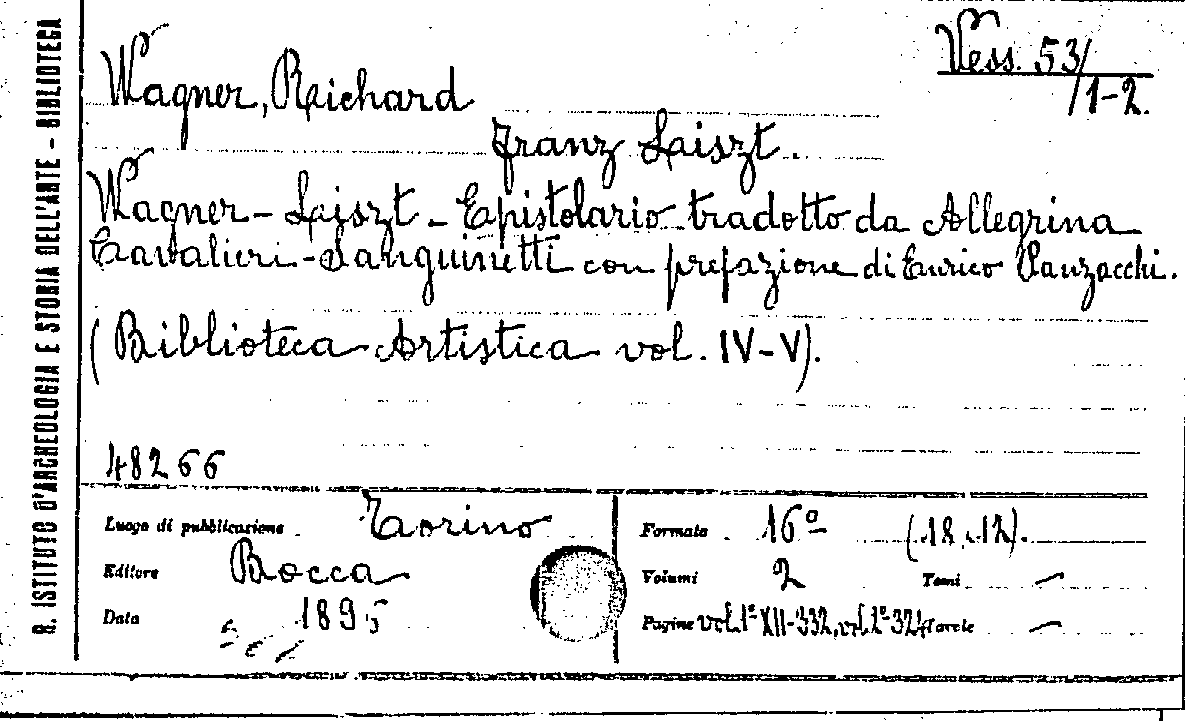 R. ISTITUTO D'ARCHEOLOGIA E STORIA DELL'ARTE - BIBLIOTECA
Vess. 53/
/1-2.
Wagner, Richard
Franz Liszt.
Wagner - Liszt - Epistolario tradotto da Allegrina
Cavalieri-Sanguinetti con prefazione di Enrico Panzacchi.
(Biblioteca Artistica vol. IV-V).
48266
Luogo di pubblicazione Torino
Editore Bocca
Data 1895
Formato 16º (18.12).
Volumi 2 Tomi —
Pagine vol. 1º XII-332, vol. 2º-324 Tavole —